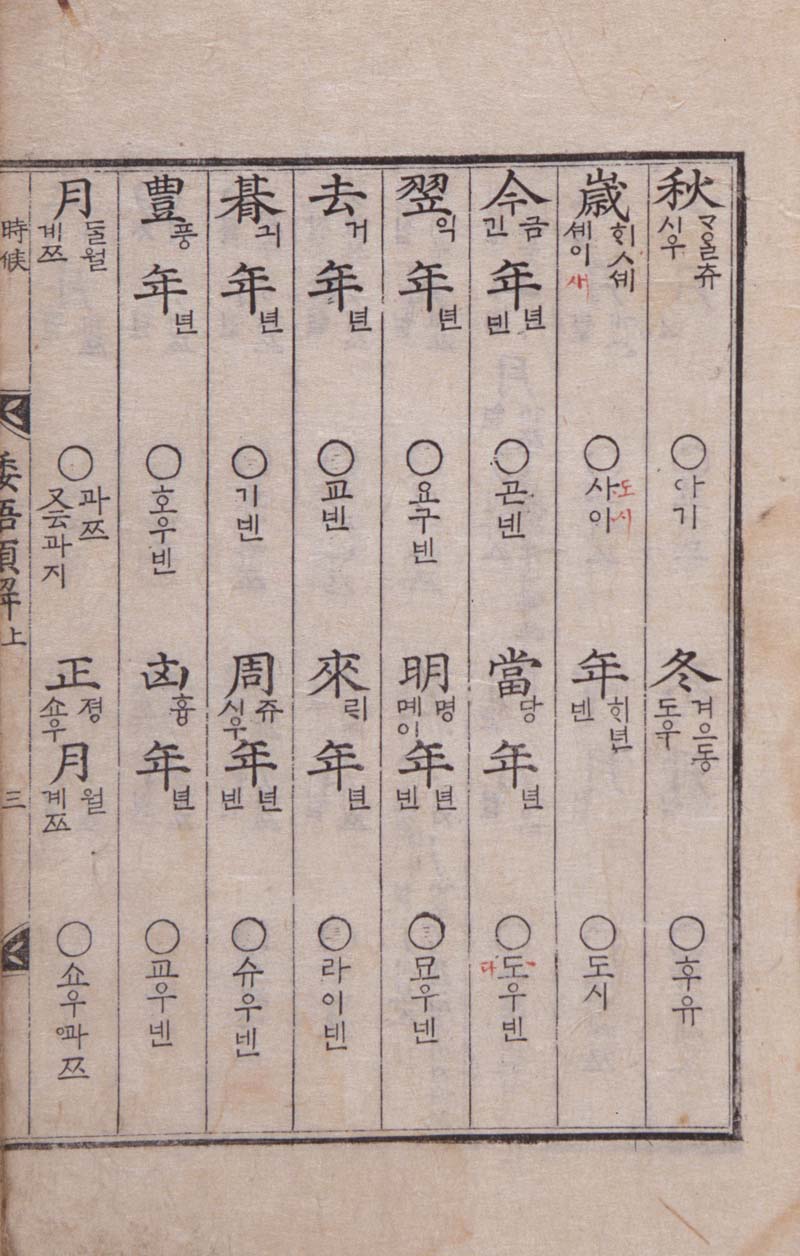 秋 ᄀᆞ올츄 시우 ○아기 冬 겨으동 도우 ○후유
歲 ᄒᆡᄉ셰 셰이 새 ○사이 도시 年 ᄒᆡ년 녠 ○도시
今 금 긴 年 년 녠 ○곤녠 當 당 年 년 ○도우녠 다
翌 익 年 년 ○요구녠 明 명 몌이 年 년 녠 ○묘우녠
去 거 年 년 ○교녠 來 ᄅᆡ 年 년 ○라이녠
朞 긔 年 년 ○기녠 周 쥬 시우 年 년 녠 ○슈우녠
豊 풍 年 년 ○호우녠 凶 흉 年 년 ○교우녠
月 ᄃᆞᆯ월 계쯔 ○과쯔 又云과지 正 졍 쇼우 月 월 계쯔 ○쇼우ᅌ과쯔
時候 倭語類解上 三